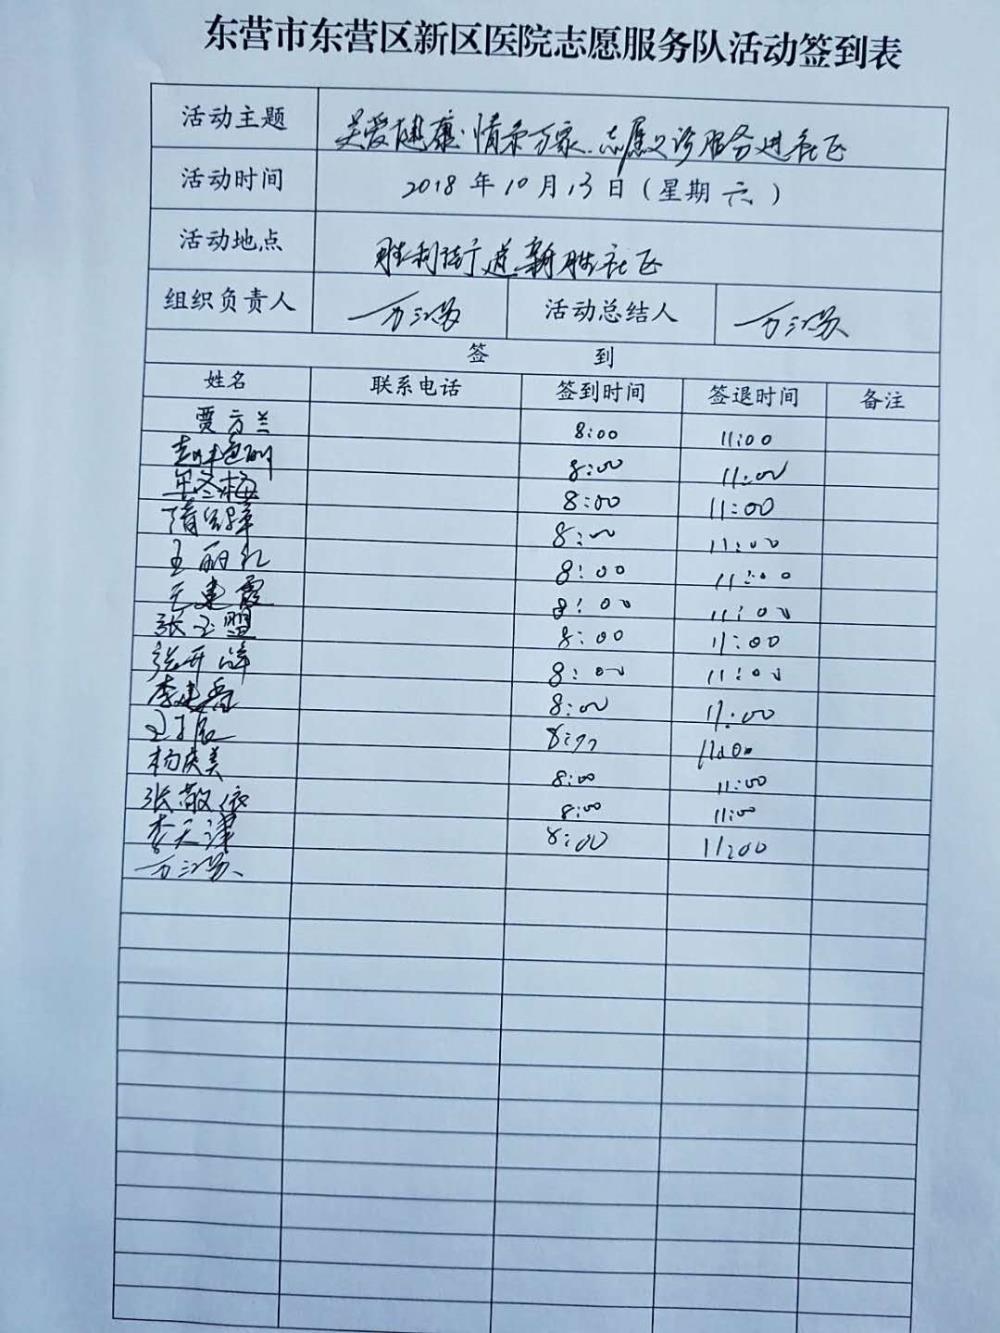 东营市东营区新区医院志愿服务队活动签到表
活动主题 关爱健康·情系万家.志愿义诊服务进社区
活动时间 2018年10月13日(星期六)
活动地点 胜利街道新胜社区
组织负责人 万江 活动总结人 万江
签 到
姓名 联系电话 签到时间 签退时间 备注
贾方兰 8:00 11:00
8:00 11:00
冬梅 8:00 11:00
隋 8:00 11:00
王丽红 8:00 11:00
王建霞 8:00 11:00
张玉盟 8:00 11:00
张开 8:00 11:00
李建 8:00 11:00
11:00
杨庆美 8:00 11:00
张敬依 8:00 11:00
李天津 8:00 11:00
万江